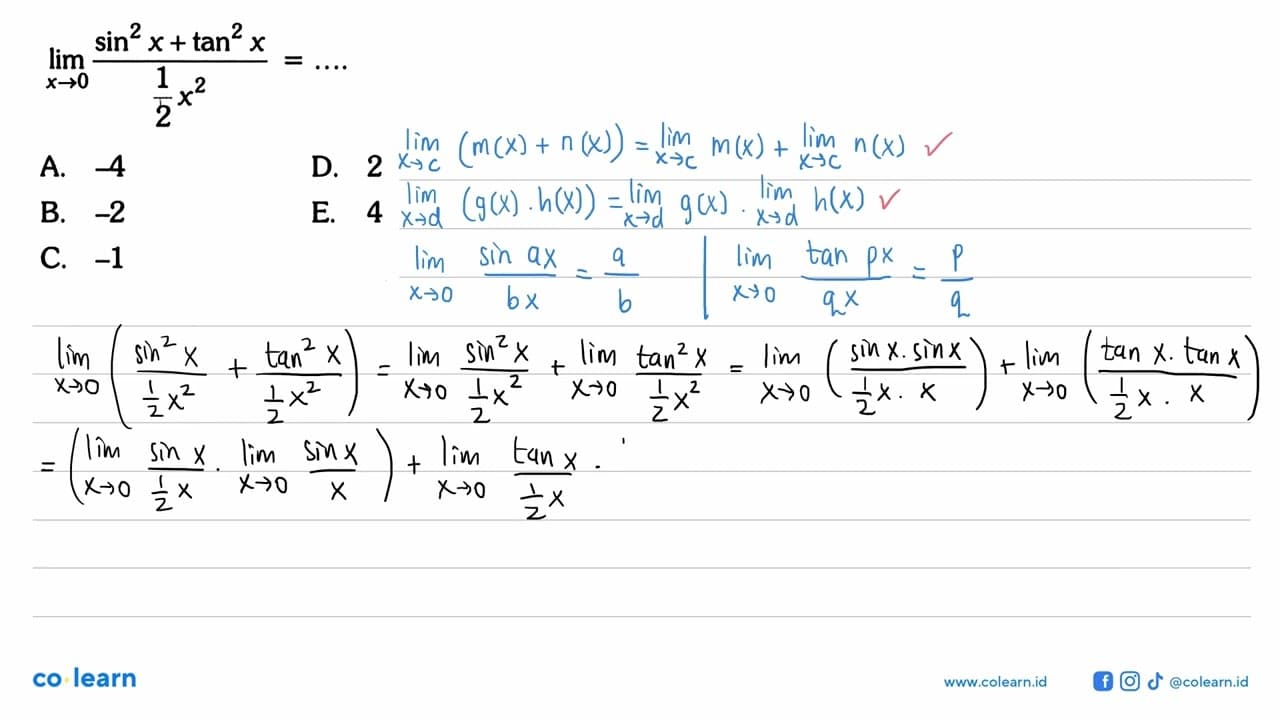 lim x→0 (sin² x + tan² x)/(1/2 x²) = ....
A. –4
B. –2
C. –1
D. 2
E. 4
lim x→c (m(x) + n(x)) = lim x→c m(x) + lim x→c n(x) ✓
lim x→d (g(x) . h(x)) = lim x→d g(x) . lim x→d h(x) ✓
lim x→0 sin ax / bx = a/b | lim x→0 tan px / qx = p/q
lim x→0 (sin² x / (1/2 x²) + tan² x / (1/2 x²)) = lim x→0 sin² x / (1/2 x²) + lim x→0 tan² x / (1/2 x²) = lim x→0 (sin x . sin x / (1/2 x . x)) + lim x→0 (tan x . tan x / (1/2 x . x))
= (lim x→0 sin x / (1/2 x) . lim x→0 sin x / x) + lim x→0 tan x / (1/2 x) .
co learn
www.colearn.id
@colearn.id